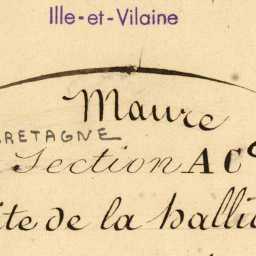 Ille-et-Vilaine
Maure
BRETAGNE
Section AC
de la